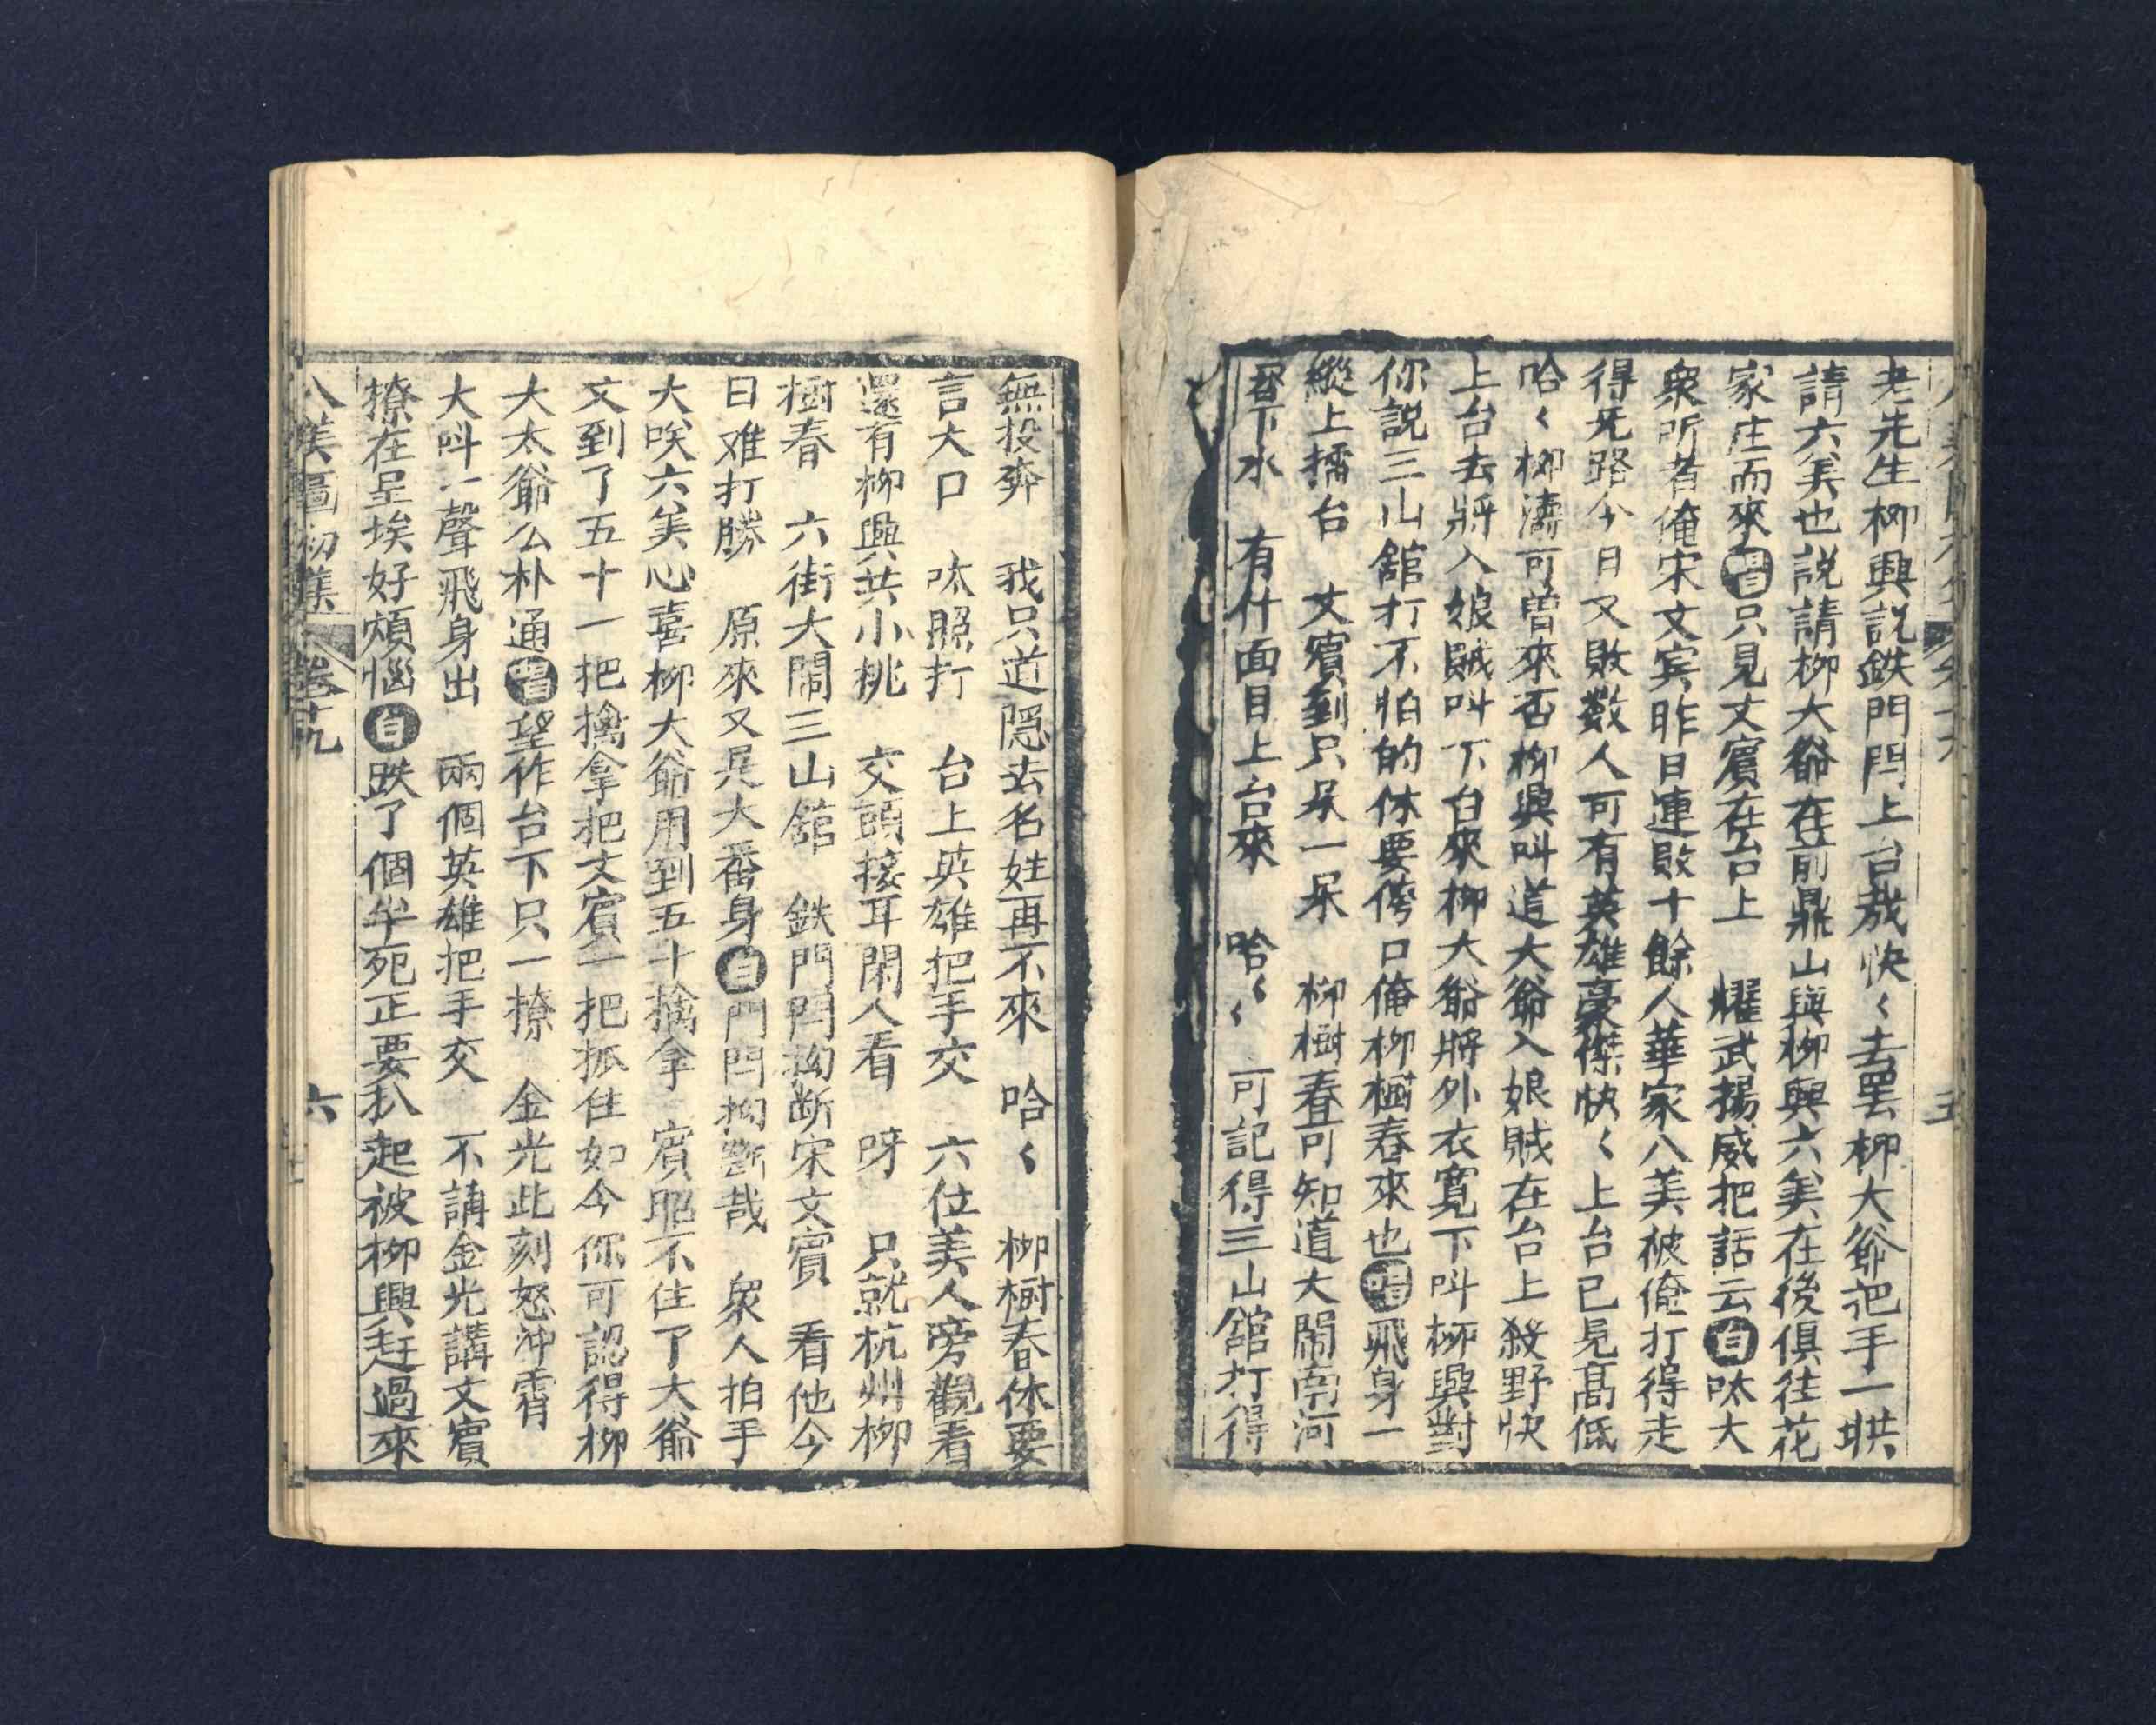 老先生柳興説鉄門閂上台哉快〻去罢柳大爺把手一拱
請六美也説請柳大爺在前鼎山與柳興六美在後俱往花
家庄而來唱只見文賓在台上　耀武揚威把話云白呔大
衆听者俺宋文宾昨日連敗十餘人華家八美被俺打得走
得无路今日又敗数人可有英雄豪傑快〻上台已見髙低
哈〻柳濤可曽來否柳興叫道大爺入娘賊在台上殺野快
上台去將入娘賊叫下台來柳大爺將外衣寛下叫柳興對
你説三山舘打不怕的休要侉口俺柳樹春來也唱飛身一
縱上擂台　文賓到只呆一呆　柳樹春可知道大閙南河
下水　有什面目上台來　哈〻　可記得三山舘打得
無投奔　我只道隱去名姓再不來　哈〻　柳樹春休要
言大口　呔照打　台上英雄把手交　六位美人旁觀看
還有柳興共小桃　交頭接耳閑人看　呀　只就杭州柳
樹春　六街大閙三山舘　鉄門閂拗断宋文賓　看他今
日难打勝　原來又是大番身白門閂拗斷哉　衆人拍手
大唉六美心喜柳大爺用到五十擒拿　賓眼不住了大爺
文到了五十一把擒拿把文賓一把抓住如今你可認得柳
大太爺么朴通唱望作台下只一撩　金光此刻怒沖霄
大呌一聲飛身出　兩個英雄把手交　不講金光講文賓
撩在呈埃好煩惱白跌了個半死正要扒起被柳興赶過來
八美圖初集　卷十九　六